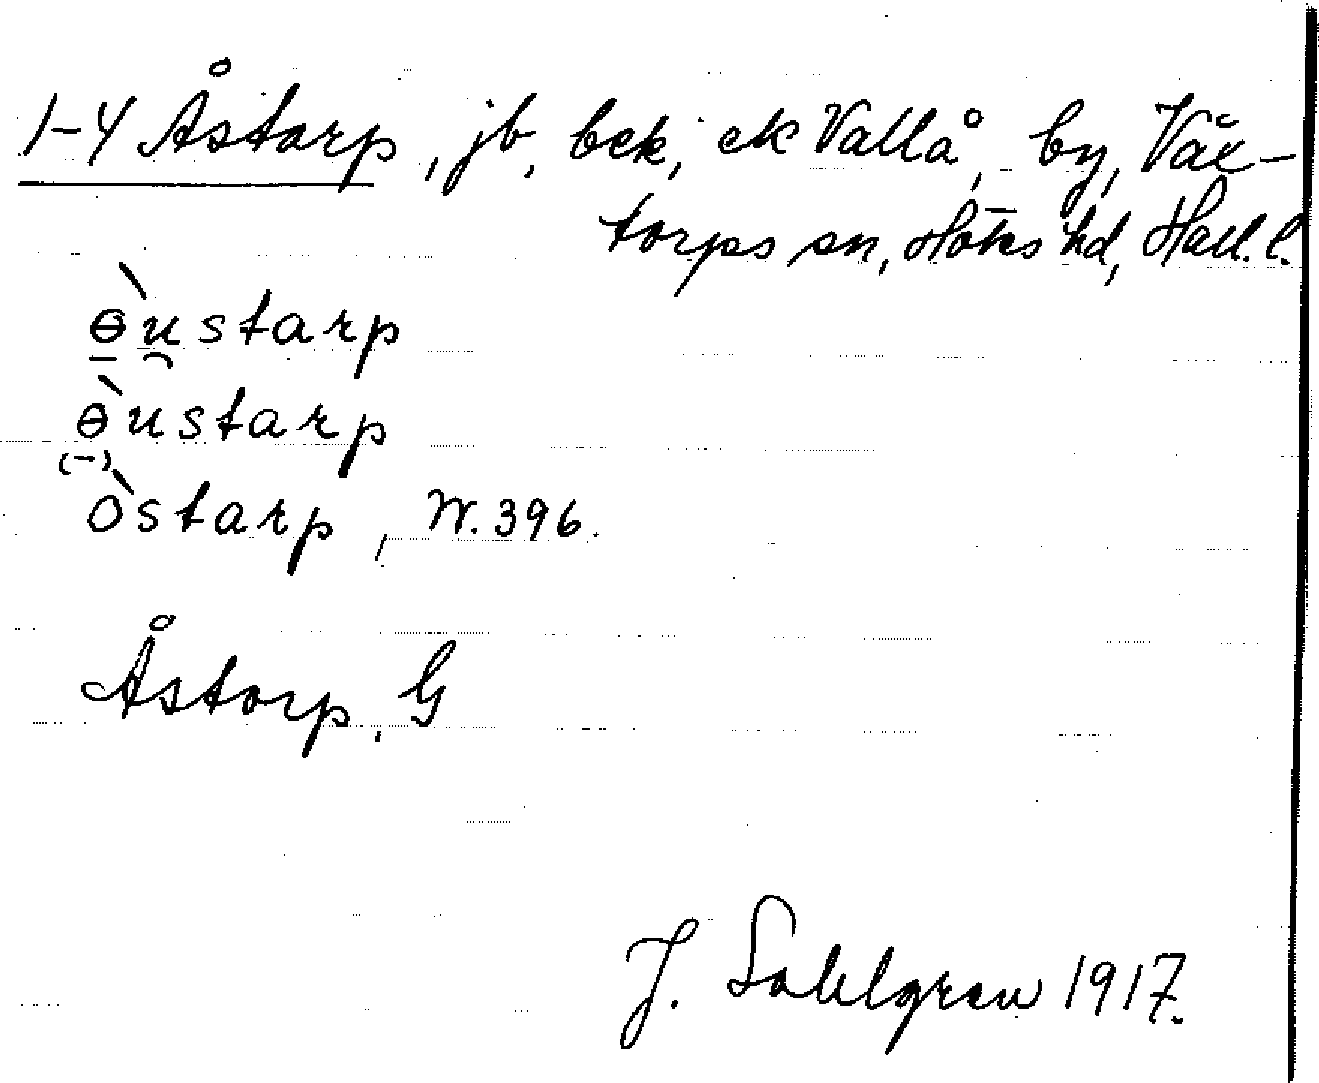 1-4 Åstarp, jb, bek, ek Vallå, by, Väx-
torps sn, Höks hd, Hall. l.
ɵ̀ustarp
ɵ̀ustarp
(-)
òstarp, W. 396.
Åstorp, G
J. Sahlgren 1917.